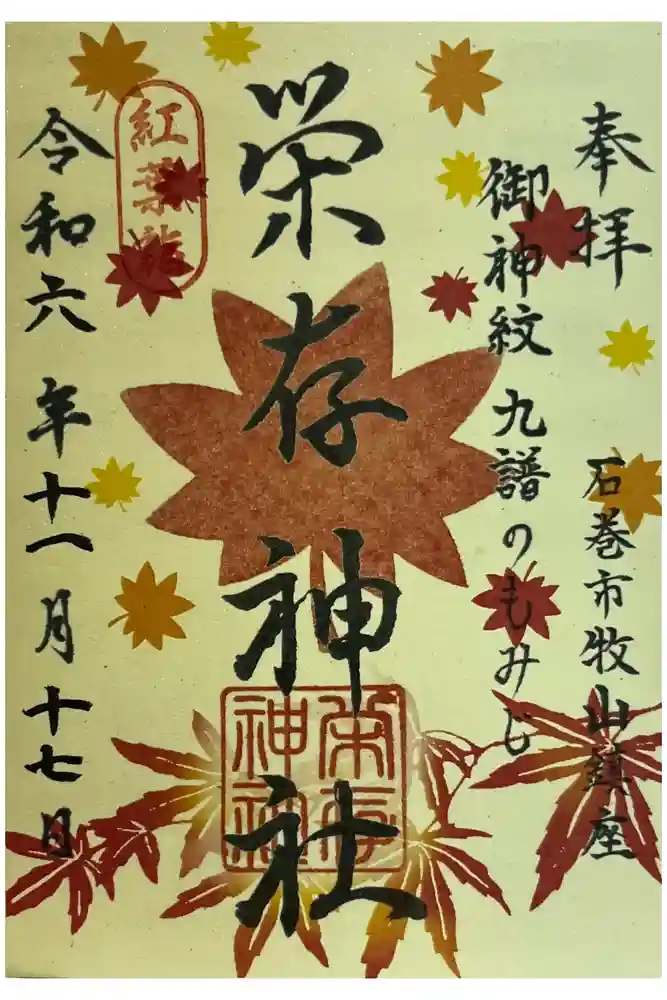 奉拝
石巻市牧山鎮座
御神紋 九譜のもみじ
栄存神社
紅葉
令和六年十一月十七日